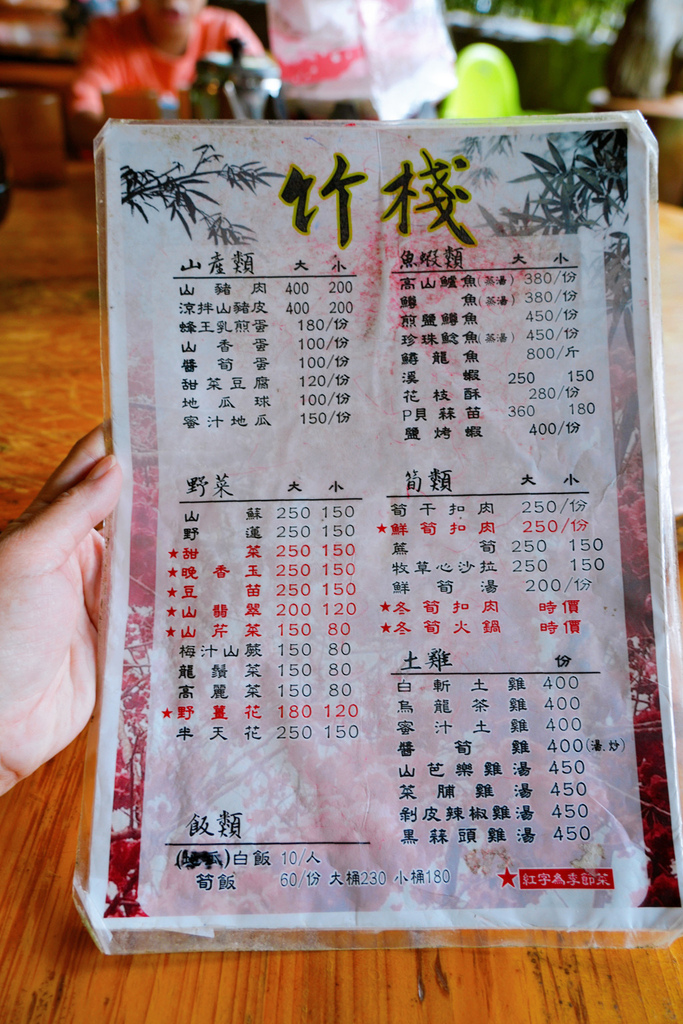 竹棧
山產類 大 小
山豬肉 400 200
涼拌山豬皮 400 200
蜂王乳煎蛋 180/份
山香蛋 100/份
醬筍蛋 100/份
甜菜豆腐 120/份
地瓜球 100/份
蜜汁地瓜 150/份
魚蝦類 大 小
高山鱸魚(蒸湯) 380/份
鱒魚(蒸湯) 380/份
煎鹽鱒魚 450/份
珍珠鯰魚(蒸湯) 450/份
鱘龍魚 800/斤
溪蝦 250 150
花枝酥 280/份
P貝蒜苗 360 180
鹽烤蝦 400/份
野菜 大 小
山蘇 250 150
野蓮 250 150
★甜菜 250 150
★晚香玉 250 150
★豆苗 250 150
★山翡翠 200 120
★山芹菜 150 80
梅汁山蕨 150 80
龍鬚菜 150 80
高麗菜 150 80
★野薑花 180 120
半天花 250 150
筍類 大 小
筍干扣肉 250/份
★鮮筍扣肉 250/份
蔴筍 250 150
牧草心沙拉 250 150
鮮筍湯 200/份
★冬筍扣肉 時價
★冬筍火鍋 時價
土雞 份
白斬土雞 400
烏龍茶雞 400
蜜汁土雞 400
醬筍雞 400(湯.炒)
山芭樂雞湯 450
菜脯雞湯 450
剝皮辣椒雞湯 450
黑蒜頭雞湯 450
飯類
白飯 10/人
筍飯 60/份 大桶230 小桶180
★紅字為季節菜